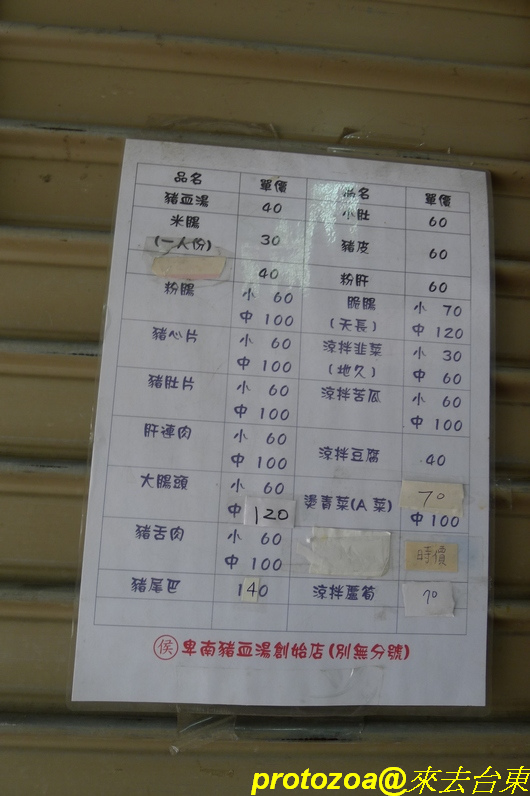 品名 單價 品名 單價
豬血湯 40 小肚 60
米腸
(一人份) 30 豬皮 60
40 粉肝 60
粉腸 小 60 脆腸 小 70
中 100 (天長) 中 120
豬心片 小 60 涼拌韭菜 小 30
中 100 (地久) 中 60
豬肚片 小 60 涼拌苦瓜 小 60
中 100 中 100
肝連肉 小 60 涼拌豆腐 40
中 100
大腸頭 小 60 燙青菜(A菜) 70
中 120 中 100
豬舌肉 小 60 時價
中 100
豬尾巴 140 涼拌蘆筍 70
侯 卑南豬血湯創始店(別無分號)
protozoa@來去台東